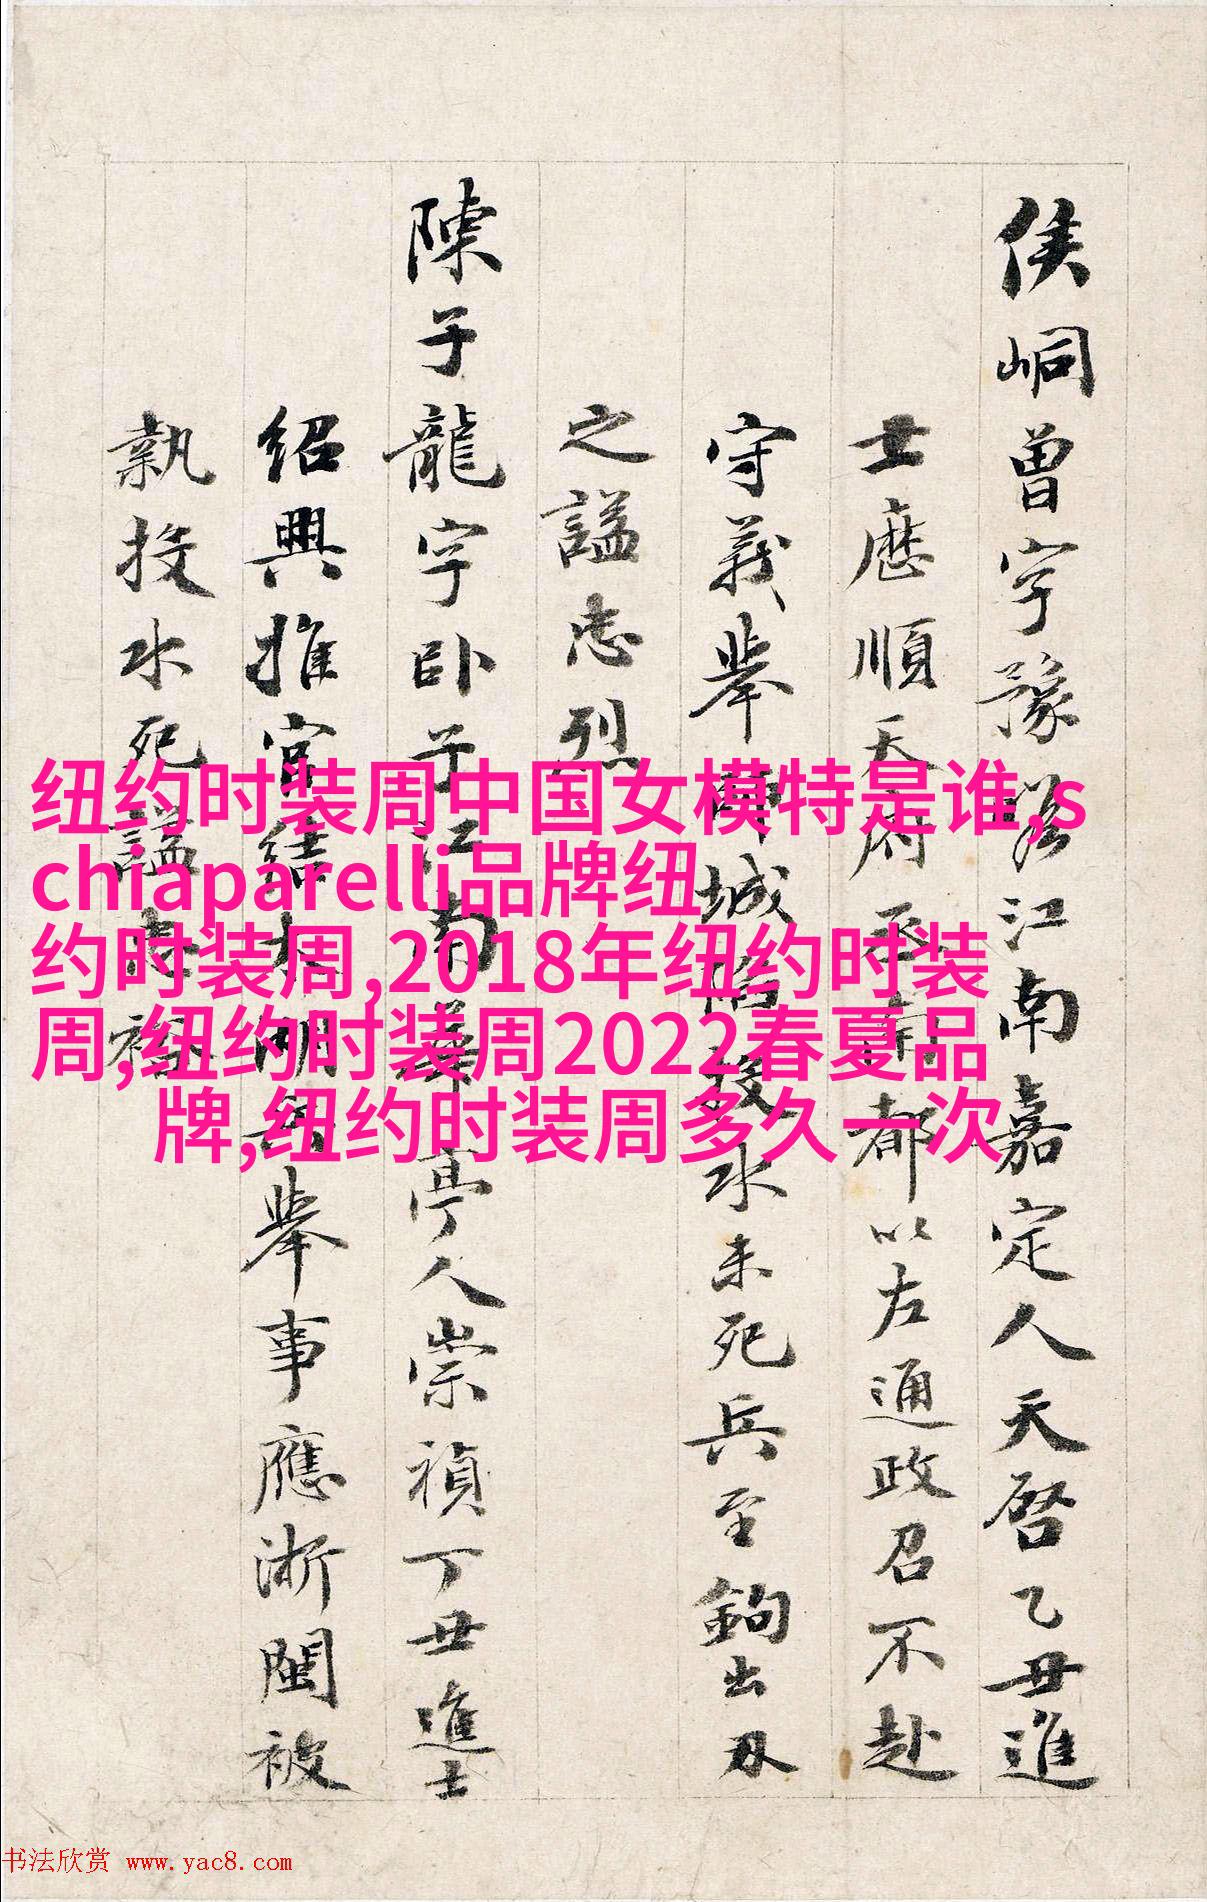 侯峒曾字豫江南嘉定人天啓乙丑進
士厯順天府丞南都以左通政召不赴
守義舉城陷投水未死兵至鉤出刃
之謚忠烈
陳子龍字卧子江南華亭人崇禎丁丑進士
紹興推官結太湖舉事應浙閩被
執投水死謚裕
纽约时装周中国女模特是谁,s
chiaparelli品牌纽
约时装周,2018年纽约时装
周,纽约时装周2022春夏品
牌,纽约时装周多久一次
书法欣赏 www.yac8.com